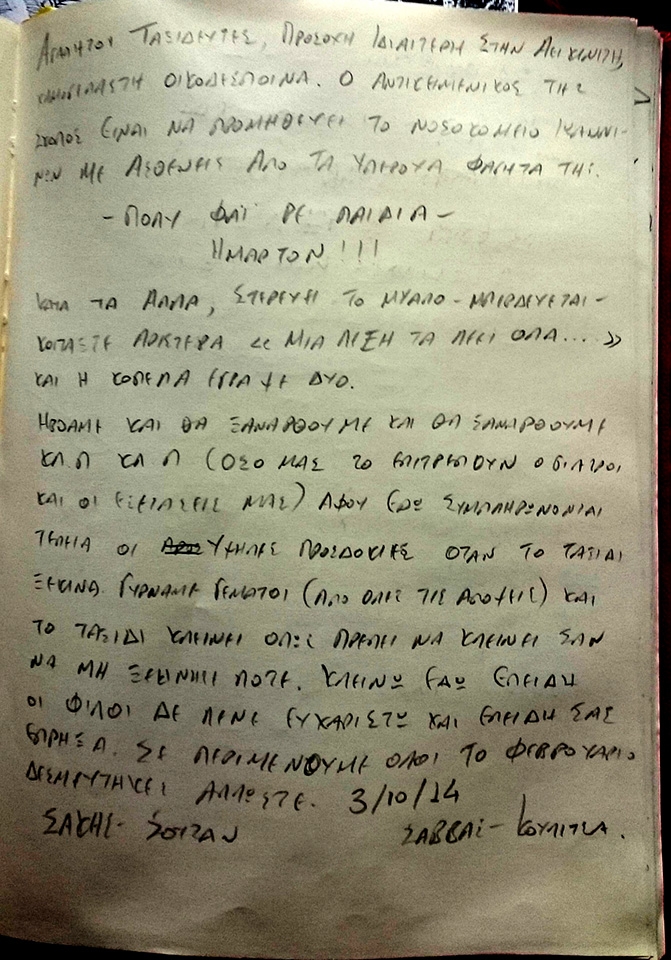 ΑΓΑΠΗΤΟΙ ΤΑΞΙΔΕΥΤΕΣ, ΠΡΟΣΟΧΗ ΙΔΙΑΙΤΕΡΗ ΣΤΗΝ ΑΕΙΚΙΝΗΤΗ,
ΧΑΜΟΓΕΛΑΣΤΗ ΟΙΚΟΔΕΣΠΟΙΝΑ. Ο ΑΝΤΙΚΗΜΕΝΙΚΟΣ ΤΗΣ
ΣΚΟΠΟΣ ΕΙΝΑΙ ΝΑ ΠΡΟΜΗΘΕΥΕΙ ΤΟ ΝΟΣΟΚΟΜΕΙΟ ΙΩΑΝΝΙ-
ΝΩΝ ΜΕ ΑΣΘΕΝΕΙΣ ΑΠΟ ΤΑ ΥΠΕΡΟΧΑ ΦΑΓΗΤΑ ΤΗΣ.
- ΠΟΛΥ ΦΑΪ ΡΕ ΠΑΙΔΙΑ -
ΗΜΑΡΤΟΝ!!!
ΚΑΤΑ ΤΑ ΑΛΛΑ, ΣΤΕΡΕΥΕΙ ΤΟ ΜΥΑΛΟ - ΜΠΕΡΔΕΥΕΤΑΙ -
ΚΟΙΤΑΞΤΕ ΑΡΙΣΤΕΡΑ << ΜΙΑ ΛΕΞΗ ΤΑ ΛΕΕΙ ΟΛΑ... >>
ΚΑΙ Η ΚΟΠΕΛΑ ΕΓΡΑΨΕ ΔΥΟ.
ΗΡΘΑΜΕ ΚΑΙ ΘΑ ΞΑΝΑΡΘΟΥΜΕ ΚΑΙ ΘΑ ΞΑΝΑΡΘΟΥΜΕ
ΚΛΠ ΚΛΠ (ΟΣΟ ΜΑΣ ΤΟ ΕΠΙΤΡΕΠΟΥΝ Ο ΓΙΑΤΡΟΙ
ΚΑΙ ΟΙ ΕΞΕΤΑΣΕΙΣ ΜΑΣ) ΑΦΟΥ ΕΔΩ ΣΥΜΠΛΗΡΩΝΟΝΤΑΙ
ΤΕΛΕΙΑ ΟΙ ΥΨΗΛΕΣ ΠΡΟΣΔΟΚΙΕΣ ΟΤΑΝ ΤΟ ΤΑΞΙΔΙ
ΞΕΚΙΝΑ. ΓΥΡΝΑΜΕ ΓΕΜΑΤΟΙ (ΑΠΟ ΟΛΕΣ ΤΙΣ ΑΠΟΨΕΙΣ) ΚΑΙ
ΤΟ ΤΑΞΙΔΙ ΚΛΕΙΝΕΙ ΟΠΩΣ ΠΡΕΠΕΙ ΝΑ ΚΛΕΙΝΕΙ ΣΑΝ
ΝΑ ΜΗ ΞΕΚΙΝΗΣΕ ΠΟΤΕ. ΚΛΕΙΝΩ ΕΔΩ ΕΠΕΙΔΗ
ΟΙ ΦΙΛΟΙ ΔΕ ΛΕΝΕ ΕΥΧΑΡΙΣΤΩ ΚΑΙ ΕΠΕΙΔΗ ΣΑΣ
ΕΠΡΗΞΑ. ΣΕ ΠΕΡΙΜΕΝΟΥΜΕ ΟΛΟΙ ΤΟ ΦΕΒΡΟΥΑΡΙΟ
ΔΕΣΜΕΥΤΗΚΕΣ ΑΛΛΩΣΤΕ. 3/10/14
ΣΑΚΗΣ - ΣΟΥΖΑΝ ΣΑΒΒΑΣ -